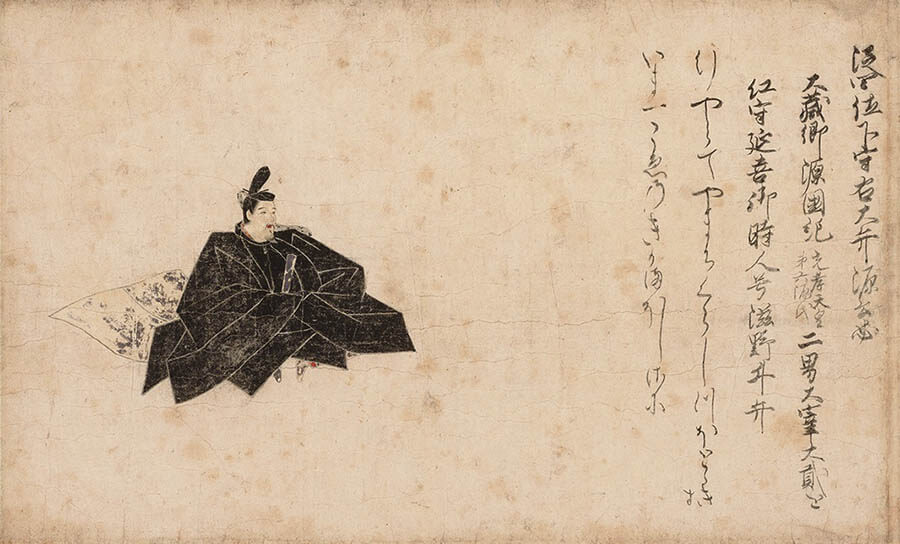 従四位下守右大弁源公忠
大蔵卿源国紀 光孝天皇第六源氏 二男大宰大貳近
江守延喜御時人号滋野井弁
行やらてやまちくらしつほとゝきす
いま一こゑのきかまほしさに